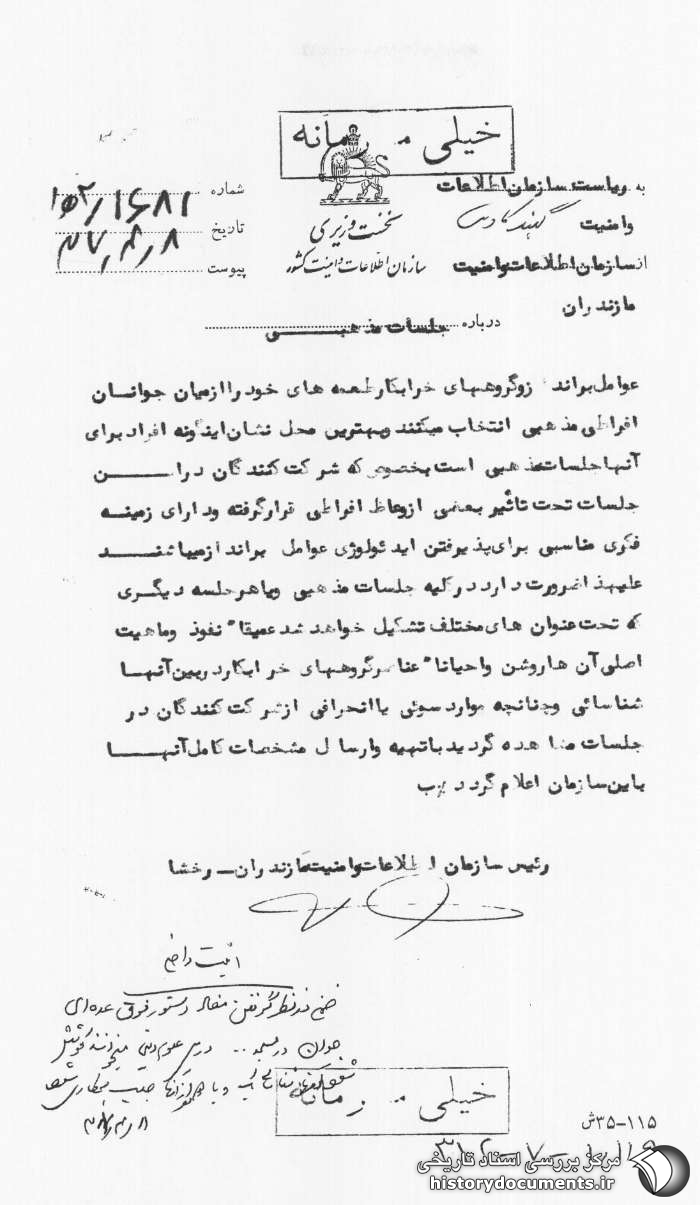 خیلی محرمانه
به ریاست سازمان اطلاعات
وامنیت گنبد کاوس
از سازمان اطلاعات وامنیت
مازندران
نخست وزیری
سازمان اطلاعات و امنیت کشور
شماره ۱۵۲/۱۶۸۱
تاریخ ۴۷,۴,۸
پیوست
درباره جلسات مذهبی
عوامل برانداز وگروههای خرابکار طعمه های خود را از میان جوانان
افراطی مذهبی انتخاب میکنند وبهترین محل نشان اینگونه افراد برای
آنها جلسات مذهبی است بخصوص که شرکت کنندگان در این
جلسات تحت تأثیر بعضی از وعاظ افراطی قرارگرفته ودارای زمینه
فکری مناسبی برای پذیرفتن ایدئولوژی عوامل برانداز میباشند
علیهذا ضرورت دارد در کلیه جلسات مذهبی ویا هر جلسه دیگری
که تحت عنوان های مختلف تشکیل خواهد شد عمیقا" نفوذ وماهیت
اصلی آن ها روشن واحیانا" عناصر گروههای خرابکار در بین آنها
شناسائی وچنانچه موارد سوئی یا انحرافی از شرکت کنندگان در
جلسات مشاهده گردید با تهیه وارسال مشخصات کامل آنها
باین سازمان اعلام گردد
رئیس سازمان اطلاعات وامنیت مازندران ـ رخشا
امنیت داخلی
ضمن در نظر گرفتن مفاد دستور فوق عده‌ای
جوان در مسجد .. درس علوم دینی میخوانند
خیلی محرمانه
۳۵-۱۱۵ش
مرکز بررسی اسناد تاریخی
historydocuments.ir